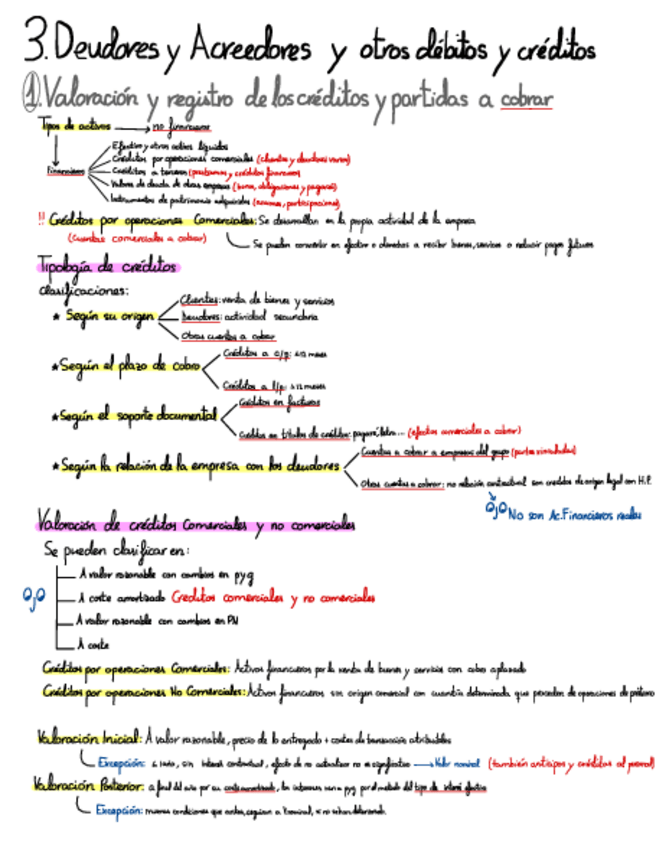 3. Deudores y Acreedores y otros débitos y créditos
1. Valoración y registro de los créditos y partidas a cobrar
Tipos de activos → no financieros
Financieros
Efectivo y otros activos líquidos
Créditos por operaciones comerciales (clientes y deudores varios)
Créditos a terceros (préstamos y créditos financieros)
Valores de deuda de otras empresas (bonos, obligaciones y pagarés)
Instrumentos de patrimonio adquiridos (acciones, participaciones)
!! Créditos por operaciones Comerciales: Se desarrollan en la propia actividad de la empresa
(Cuentas comerciales a cobrar)
Se pueden convertir en efectivo o derechos a recibir bienes, servicios o reducir pagos futuros
Tipología de créditos
Clasificaciones:
* Según su origen
Clientes: venta de bienes y servicios
Deudores: actividad secundaria
Otras cuentas a cobrar
* Según el plazo de cobro
Créditos a c/p: ≤12 meses
Créditos a l/p: >12 meses
* Según el soporte documental
Créditos en facturas
Créditos en títulos de crédito: pagaré, letra... (efectos comerciales a cobrar)
* Según la relación de la empresa con los deudores
Cuentas a cobrar a empresas del grupo (partes vinculadas)
Otras cuentas a cobrar: no relación contractual son créditos de origen legal con H.P.
Ojo No son Ac. Financieros reales
Valoración de créditos Comerciales y no comerciales
Se pueden clasificar en:
A valor razonable con cambios en pyg
Ojo A coste amortizado Creditos comerciales y no comerciales
A valor razonable con cambios en PN
A coste
Créditos por operaciones Comerciales: Activos financieros por la venta de bienes y servicios con cobro aplazado
Créditos por operaciones No Comerciales: Activos financieros sin origen comercial con cuantía determinada que proceden de operaciones de préstamo
Valoración Inicial: A valor razonable, precio de lo entregado + costes de transacción atribuibles
Excepción: sin interés contractual, efecto de no actualizar no es significativo → Valor nominal (también anticipos y créditos al personal)
Valoración Posterior: a final del año por su coste amortizado, los intereses van a pyg por el método del tipo de interés efectivo
Excepción: mismas condiciones que antes, seguirán a V.nominal, si no se han deteriorado.